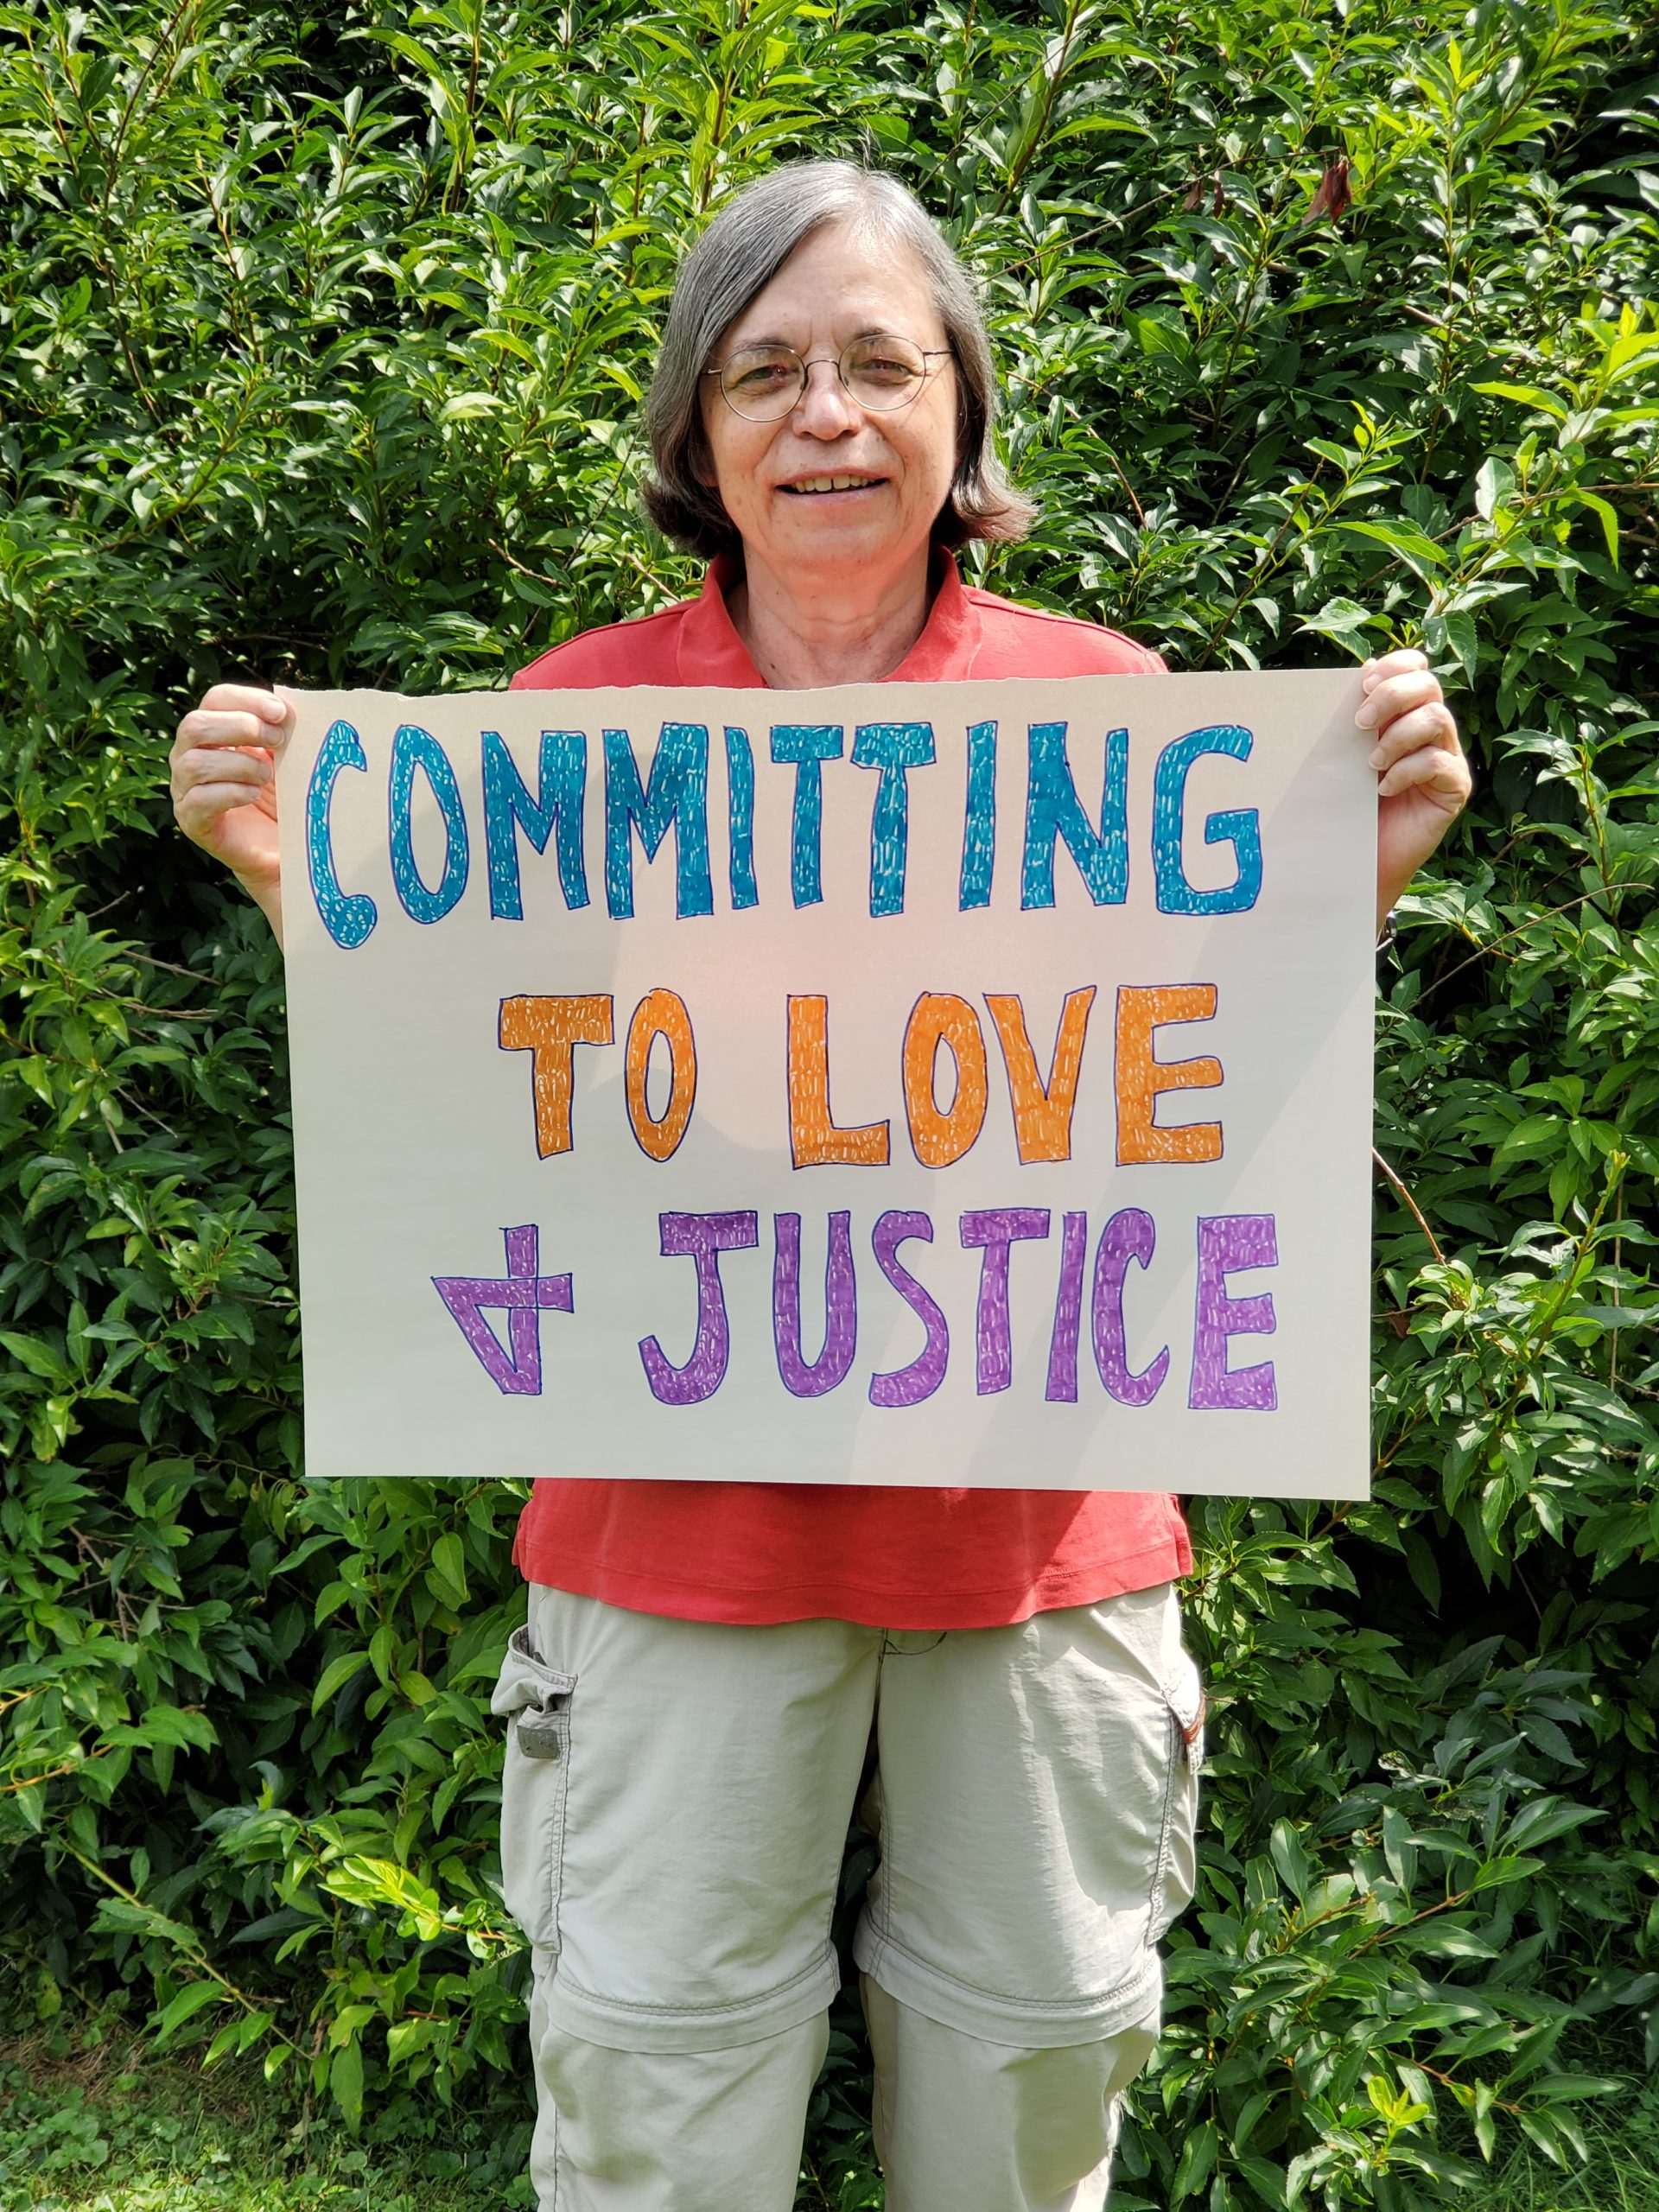 COMMITTING
TO LOVE
& JUSTICE